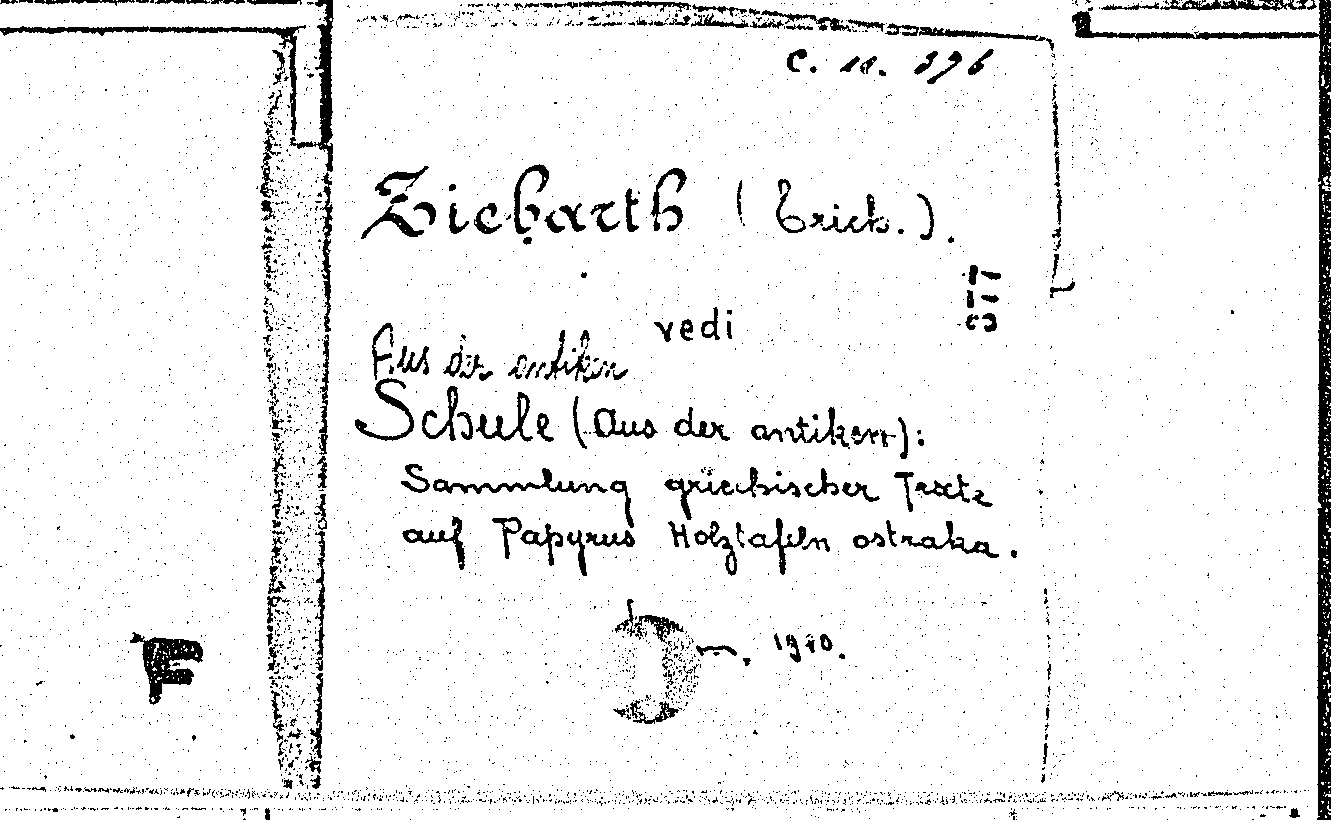 C. 11. 396
Ziebarth (Erich.).
577
vedi
Aus der antiken
Schule (Aus der antiken):
Sammlung griechischer Texte
auf Papyrus Holztafeln ostraka.
1910.
F